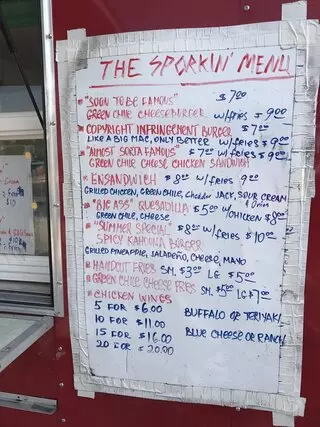 THE SPORKIN' MENU
"SOON TO BE FAMOUS" $7.00
GREEN CHILE CHEESEBURGER w/fries $9.00
COPYRIGHT INFRINGEMENT BURGER $7.00
LIKE A BIG MAC, ONLY BETTER w/fries $9.00
"ALMOST SORTA FAMOUS" $7.00 w/fries $9.00
GREEN CHILE CHEESE CHICKEN SANDWICH
ENSANDWICH $8.00 w/fries 9.00
GRILLED CHICKEN, GREEN CHILE, Cheddar JACK, SOUR CREAM
& Onion
"BIG ASS" QUESADILLA $5.00 w/CHICKEN $8.00
GREEN CHILE, CHEESE
"SUMMER SPECIAL" $8.00 w/FRIES $10.00
SPICY KAHUNA BURGER
GRILLED PINEAPPLE, JALAPEÑO, CHEESE, MAYO
HANDCUT FRIES SM. $3.00 LG $5.00
GREEN CHILE CHEESE FRIES SM. $5.00 LG $7.00
CHICKEN WINGS
5 FOR $6.00 BUFFALO OR TERIYAKI
10 FOR $11.00
15 FOR $16.00 BLUE CHEESE OR RANCH
20 FOR $20.00